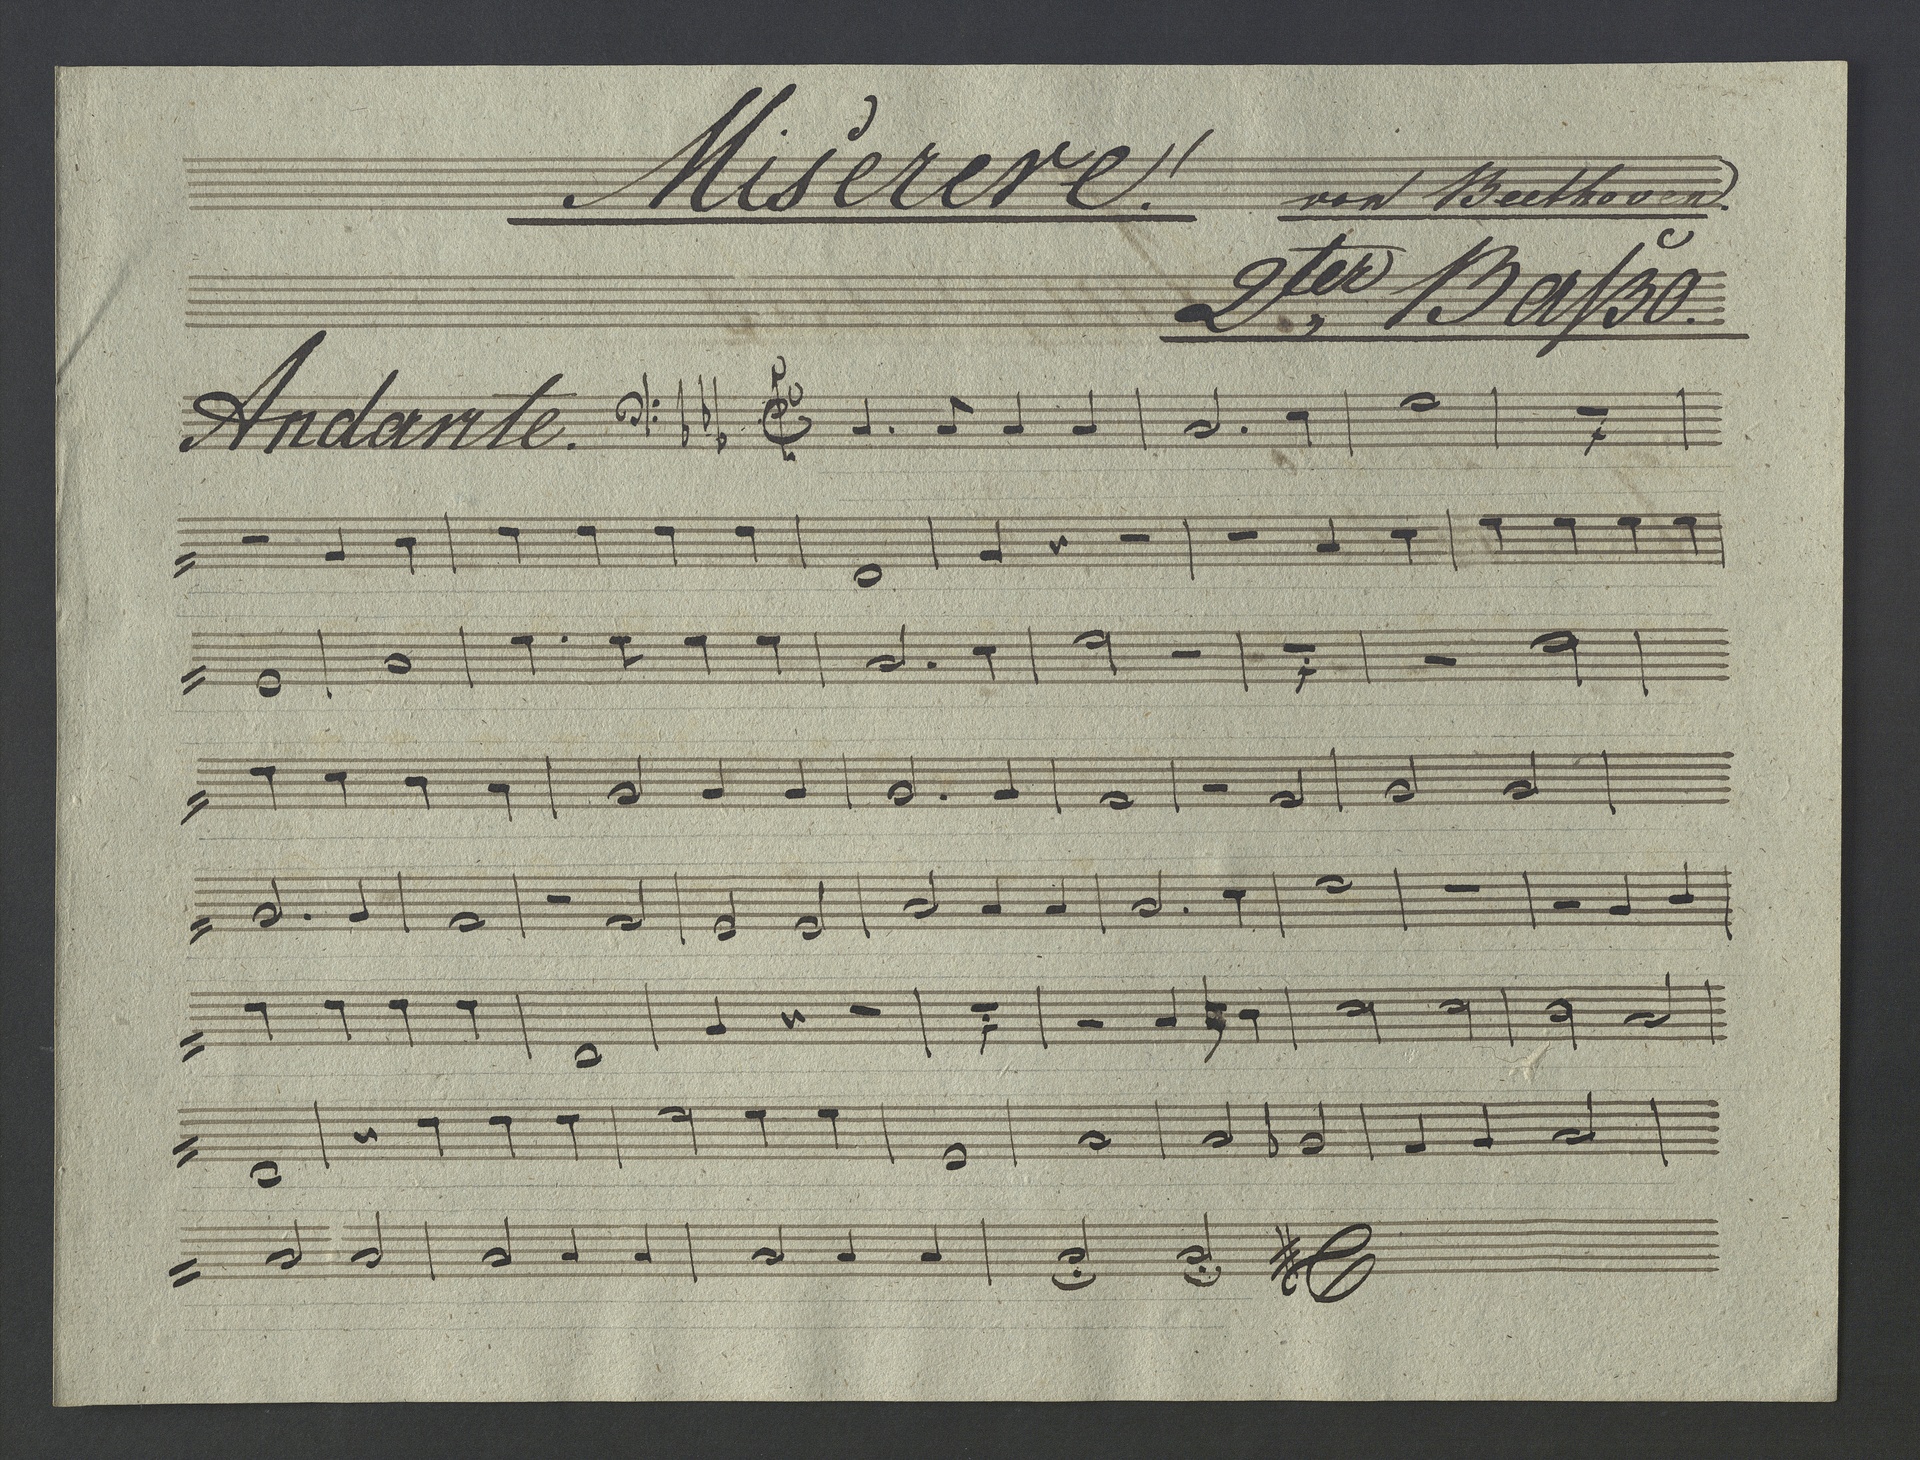 Miserere!
von Beethoven.
2ter Baßo.
Andante.